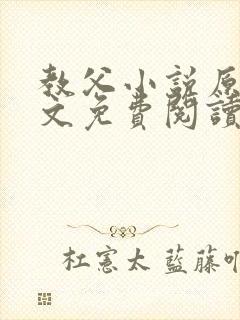 教父小説原
文免費閱讀
杜憲太 藍藤